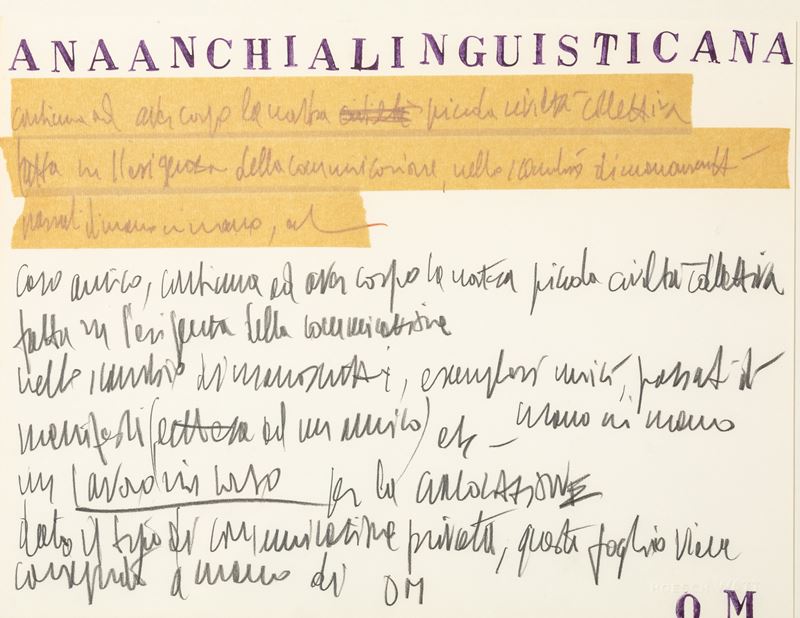 ANAANCHIALINGUISTICANA
continua ad aver corpo la nostra civiltà piccola civiltà collettiva
fatta su l'esigenza della comunicazione, nello scambio di manoscritti
passati di mano in mano, ed
Caro amico, continua ad aver corpo la nostra piccola civiltà collettiva
fatta su l'esigenza della comunicazione
nello scambio di manoscritti, esemplari unici, passati di
manifesti ad un amico) etc – mano in mano
un lavoro in corso per la CIRCOLAZIONE
dato il tipo di comunicazione privata, questo foglio viene
a mano di OM
OM